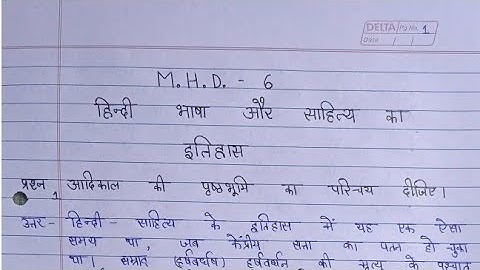 DELTA Pg No. 1
Date
M.H.D. - 6
हिन्दी भाषा और साहित्य का
इतिहास
प्रश्न 1 आदिकाल की पृष्ठभूमि का परिचय दीजिए।
उत्तर- हिन्दी - साहित्य के इतिहास में यह एक ऐसा
समय था, जब केंद्रीय सत्ता का पतन हो चुका
था। सम्राट (हर्षवर्धन) हर्षवर्धन की मृत्यु के पश्चात